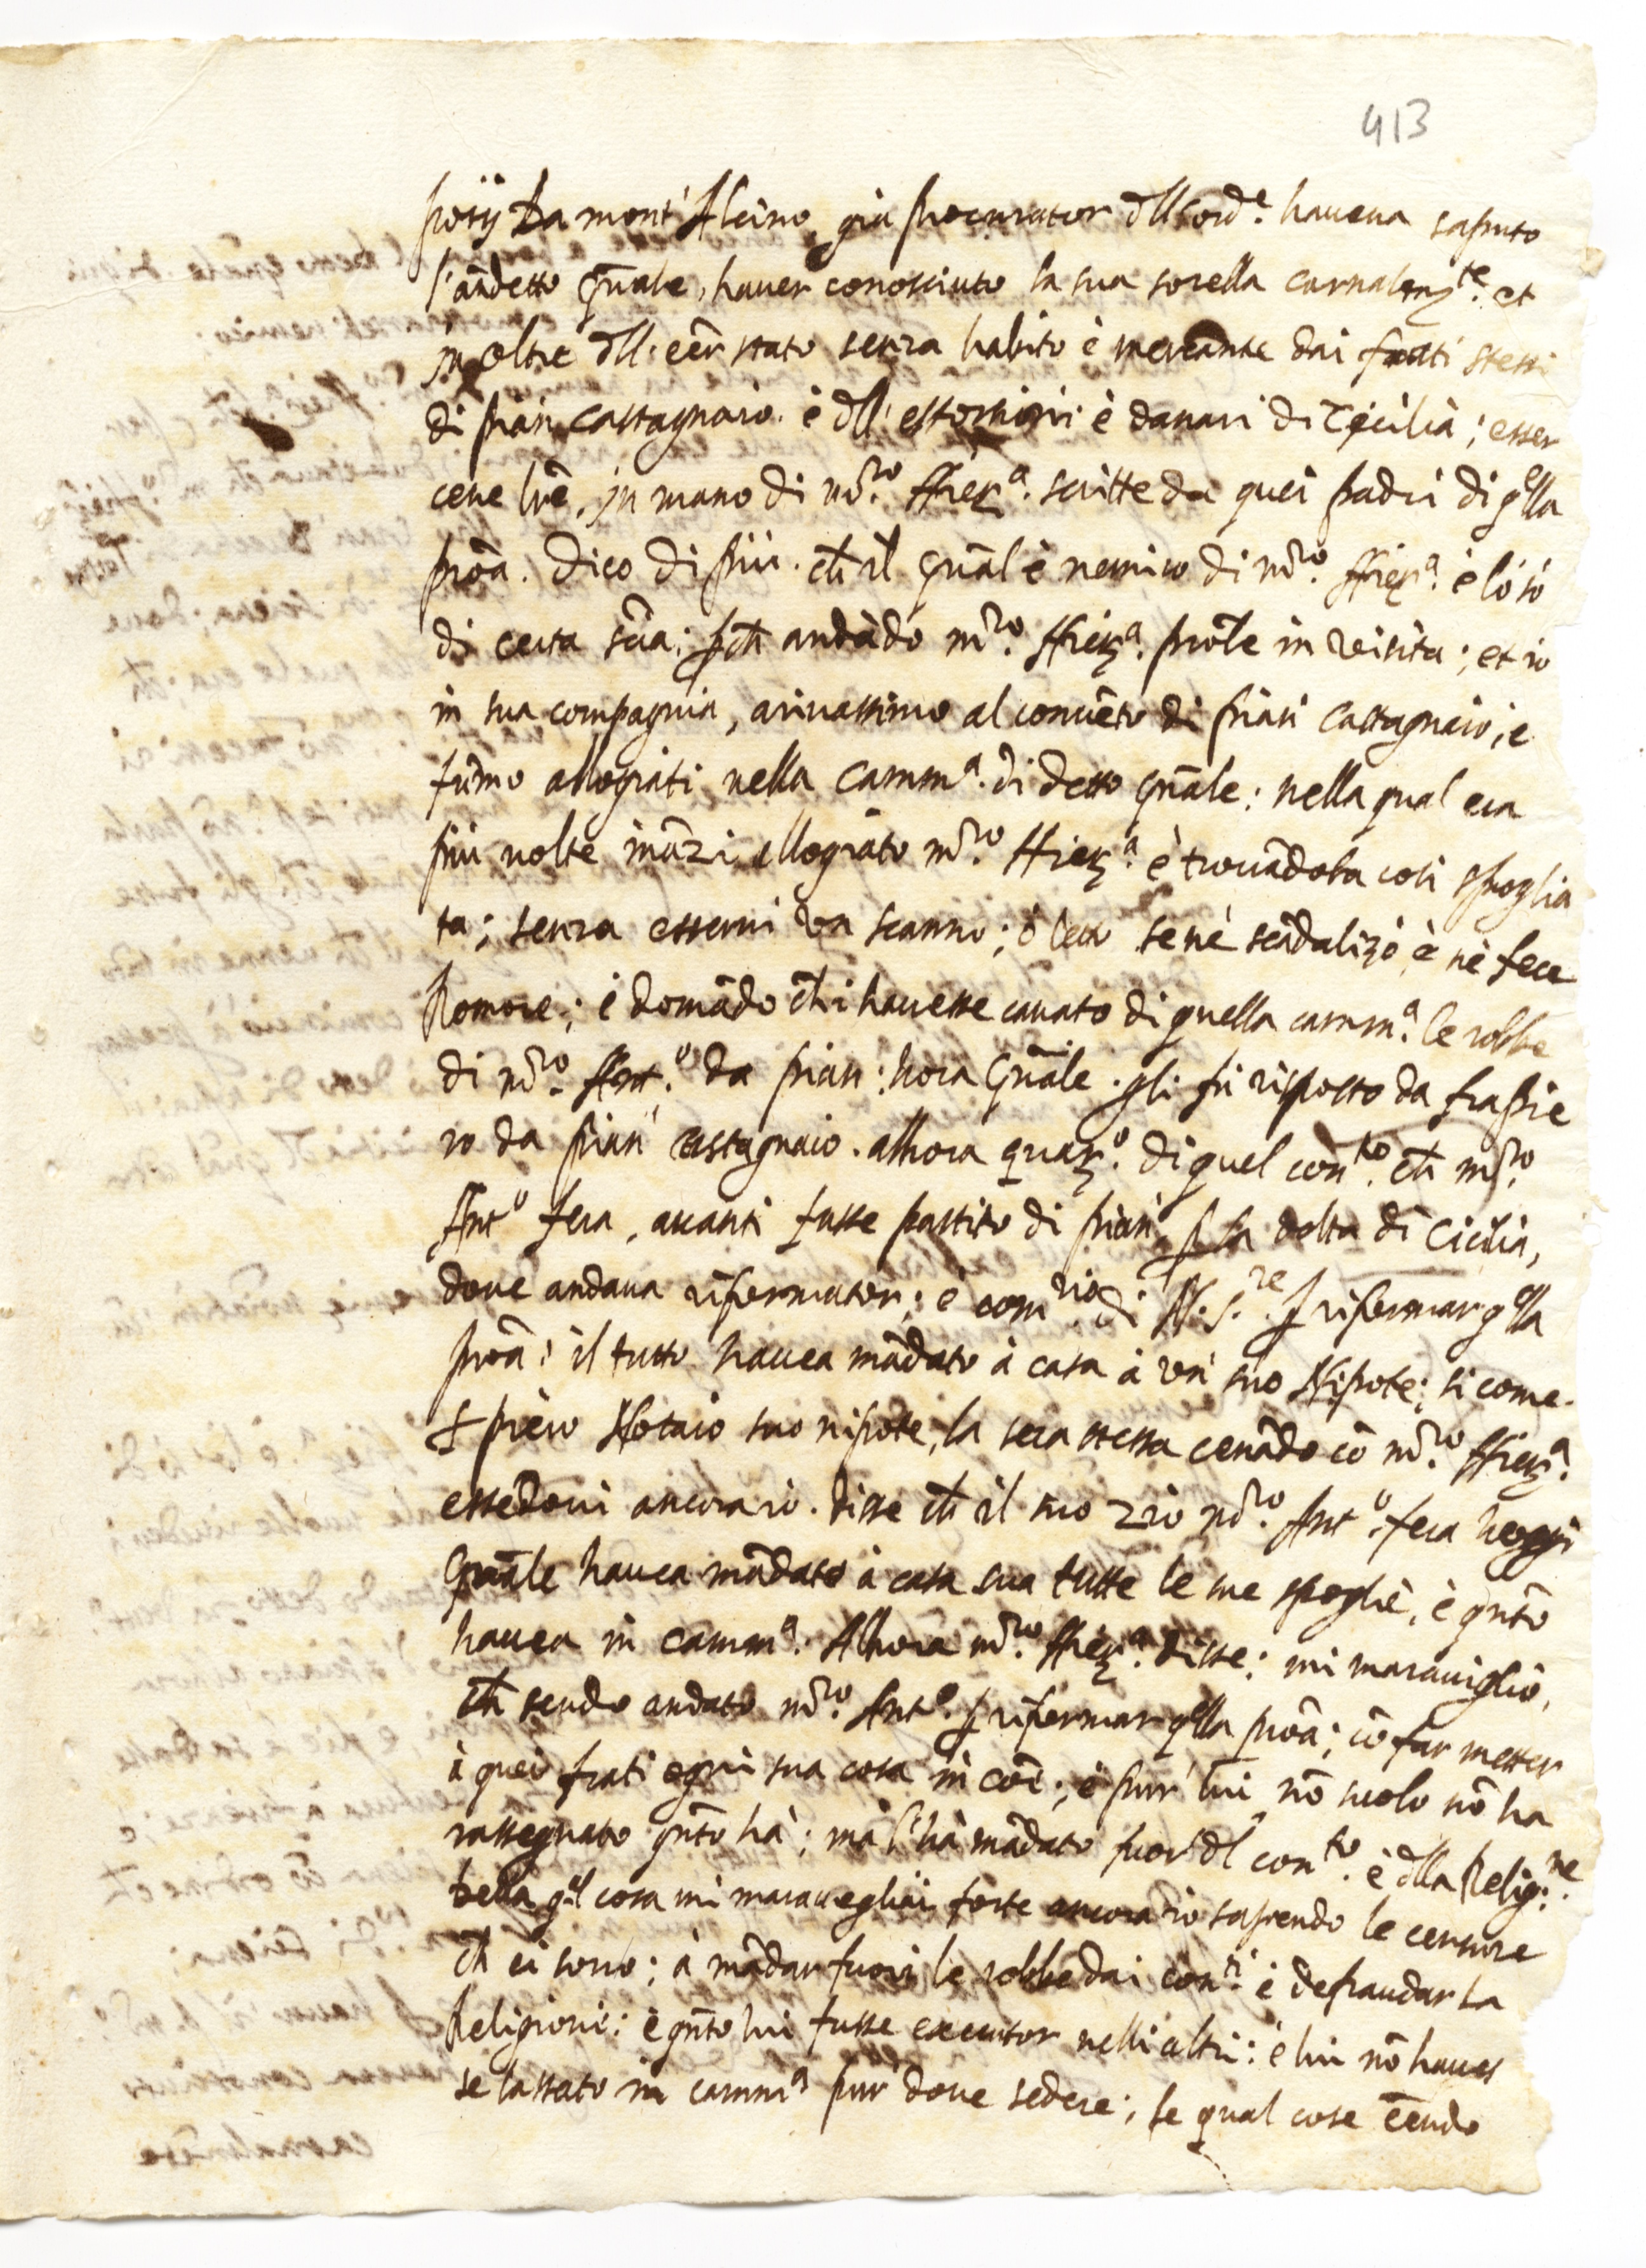 413
posij Da mont'Alcino, già procurator dll'ord.e haveua saputo
l'ãndetto gñale, hauer conosciuto la sua sorella carnalm.te et
in oltre dll'eẽr stato senza habito è mercante dai frati stessi
di pian castagnaio. è dll' estorsioni è danari di Cicilia; esser
cene lr̃e, in mano di m̃ro. Hier.a scritte da quei padri di q.lla
proã. Dico di più. ch̃ il gñal è nemico di m̃ro. Hier.a è lo sò
di certa sciã; ꝑch̃ andãdo m̃ro. Hier.a proãle in visita; et io
in sua compagnia, ariuassimo al conuẽto di pian castagnaio, e
fũmo allogiati nella camm.a di detto gñale: nella qual era
più uolte inãzi allogiato m̃ro. Hier.a è trouãdola così spoglia
ta; senza esserui un scanno; ò letto se nè scãdalizò è nè fece
Romore; è domãdò ch̃i hauesse cauato di quella camm.a le robbe
di m̃ro. Ant.o da pian: hora Gñale. gli fù risposto da fra Pie
ro da pian castagnaio. allhora guar.o di quel con.to ch̃ m̃ro
Ant.o fera, auanti fusse partito di pian, ꝑ la uolta di Cicilia,
doue andaua riformator; è com.rio di N. S.re ꝑ riformar q.lla
proã: il tutto hauea mãdato à casa à un suo Nipote; si come
S piero Notaio suo nipote, la sera stessa cenãdo cõ m̃ro. Hier.a
essẽdoui ancora io. disse ch̃ il suo zio m̃ro. Ant.o fera hoggi
Gñale hauea mãdato à casa sua tutte le sue spoglie, è qñto
hauea in camm.a. Allhora m̃ro. Hier.a disse: mi marauiglio,
ch̃ sendo andato m̃ro. Ant.o ꝑ riformar q.lla proã; cõ far metter
à quei frati ogni sua cosa in coẽ; è pur lui nõ suolo nõ ha
rassegnato qñto hà; mà l'hà mãdato fuor dl con.to è dlla Relig.ne
della q.l cosa mi marauegliai forte ancora io sapendo le censure
ch̃ ci sono; à mãdar fuori le robbe dai con.ti è defraudar la
Religioni: è qñto lui fusse executor nelli altri: è lui nõ haues
se lassato in camm.a pur doue sedere; le qual cose eẽndo